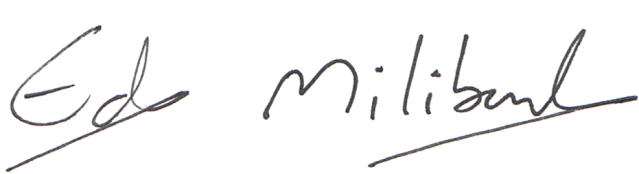 Ed Miliband